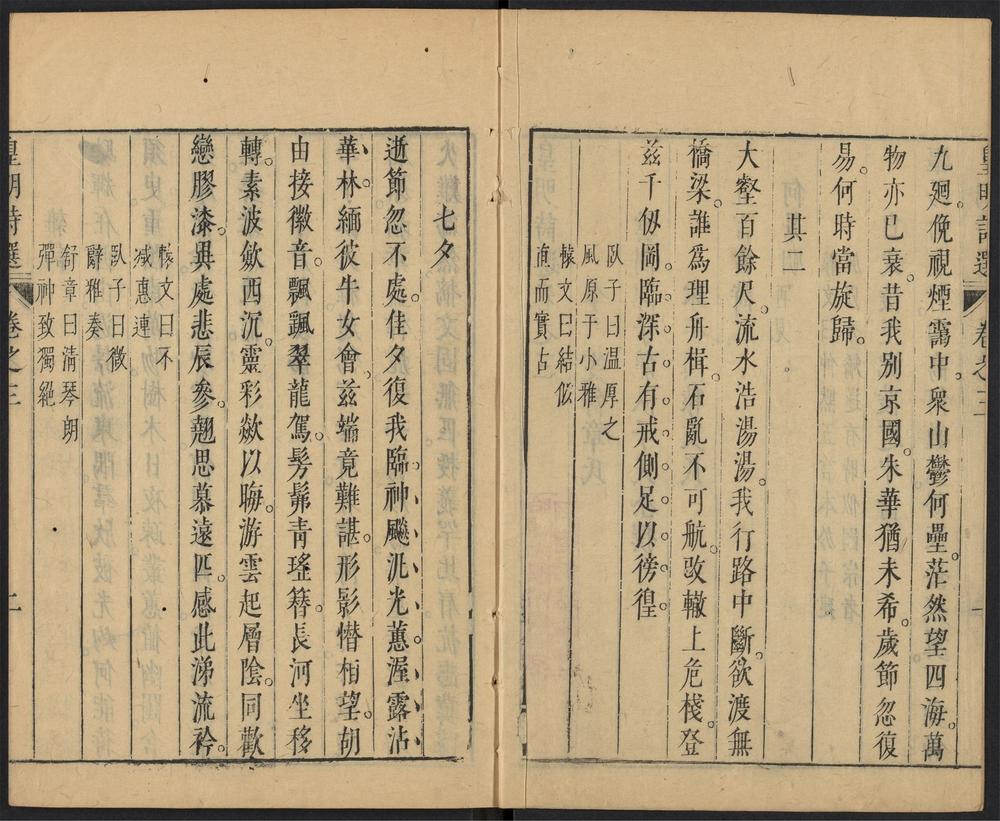 皇明詩選 卷之三 一
九廻俛視煙靄中衆山鬱何壘茫然望四海萬
物亦已衰昔我別京國朱華猶未希歲節忽復
易何時當旋歸
其二
大壑百餘尺流水浩湯湯我行路中斷欲渡無
橋梁誰爲理舟楫石亂不可航改轍上危棧登
茲千仭岡臨深古有戒側足以徬徨
臥子曰溫厚之
風原于小雅
轅文曰結似
直而實占
七夕
逝節忽不處佳夕復我臨神飈汎光蕙渥露沾
華林緬彼牛女會茲端竟難諶形影憯相望胡
由接徽音飄飄翠龍駕髣髴靑瑤簪長河坐移
轉素波歛西沉靈彩歘以晦游雲起層陰同歡
戀膠漆異處悲辰參翹思慕遠匹感此涕流衿
轅文曰不
减惠連
臥子曰微
辭雅奏
舒章曰淸琴朗
彈神致獨絕
皇明詩選 卷之三 二